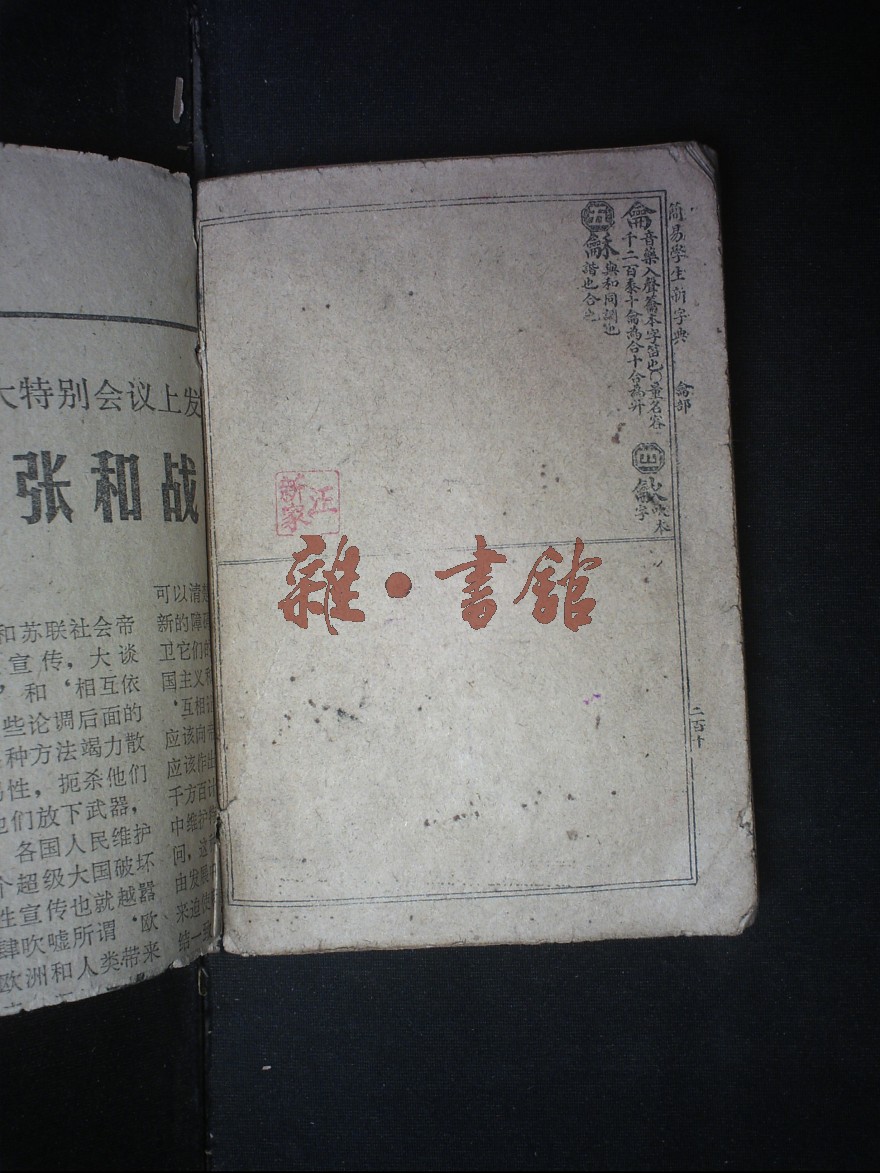 簡易學生新字典
龠部
二百十
龠
音藥入聲籥本字笛也量名容
千二百黍十龠為合十合為升
四
龡
吹本
字
五
龢
與和同調也
諧也合也
新家
汪
雜·書館
大特别会议上发
张和战
和苏联社会帝
宣传，大谈
’和‘相互依
些论调后面的
种方法竭力散
性，扼杀他们
他们放下武器，
各国人民维护
个超级大国破坏
性宣传也就越嚣
肆吹嘘所谓‘欧
欧洲和人类带来
可以清
新的障
卫它们
国主义和
‘互相
应该向
应该作
千方百计
中维护
间，这
由发展
来迫使
结一